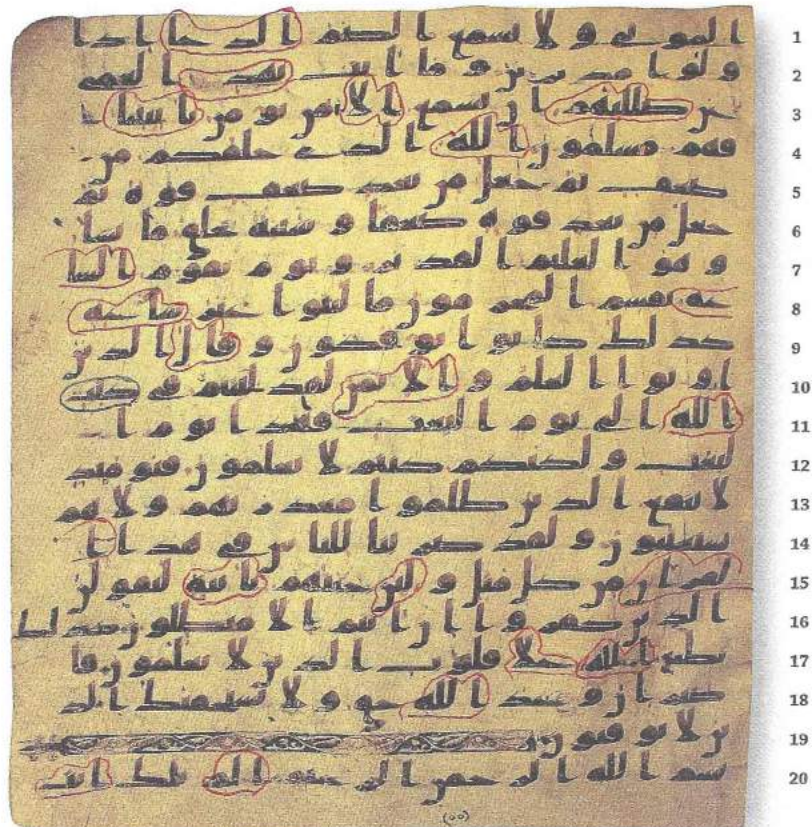 الموتى ولا تسمع الصم الدعا اذا 1
ولوا مدبرين وما انت بهد العمى 2
عن ضللتهم ان تسمع الا من يومن باييتنا 3
فهم مسلمون الله الذى خلقكم من 4
ضعف ثم جعل من بعد ضعف قوه ثم 5
جعل من بعد قوه ضعفا وشيبه يخلق ما يشا 6
وهو العليم القدير ويوم تقوم السا 7
عه يقسم المجرمون ما لبثوا غير ساعه 8
كذلك كانوا يوفكون وقال الذين 9
اوتوا العلم والايمن لقد لبثتم فى كتب 10
الله الى يوم البعث فهذا يوم ا 11
لبعث ولكنكم كنتم لا تعلمون فيومئذ 12
لا ينفع الذين ظلموا معذرتهم ولا هم 13
يستعتبون ولقد ضربنا للناس فى هذا ا 14
لقران من كل مثل ولئن جئتهم بايه ليقولن 15
الذين كفروا ان انتم الا مبطلون كذلك 16
يطبع الله على قلوب الذين لا يعلمون فا 17
صبر ان وعد الله حق ولا يستخفنك الذ 18
ين لا يوقنون 19
بسم الله الرحمن الرحيم الم تلك ايت 20
(٥٥)